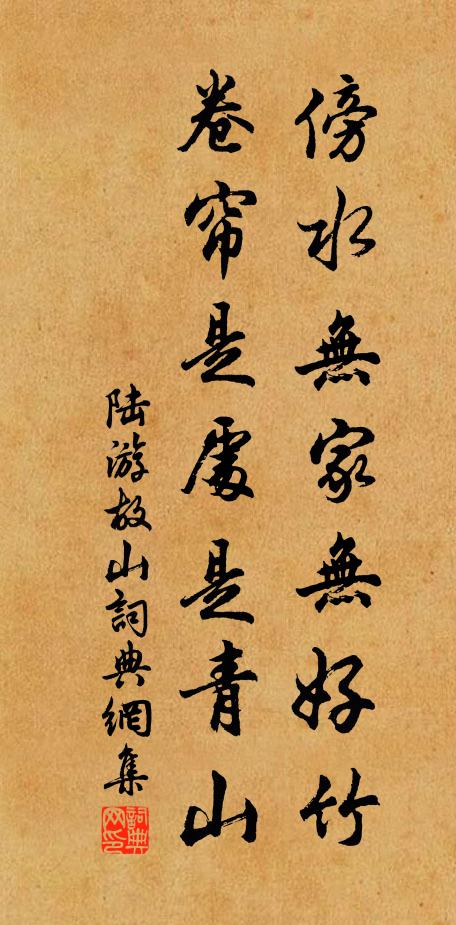 傍水無家無好竹
卷帘是處是青山
陆游故山詞典網集
詞典网印